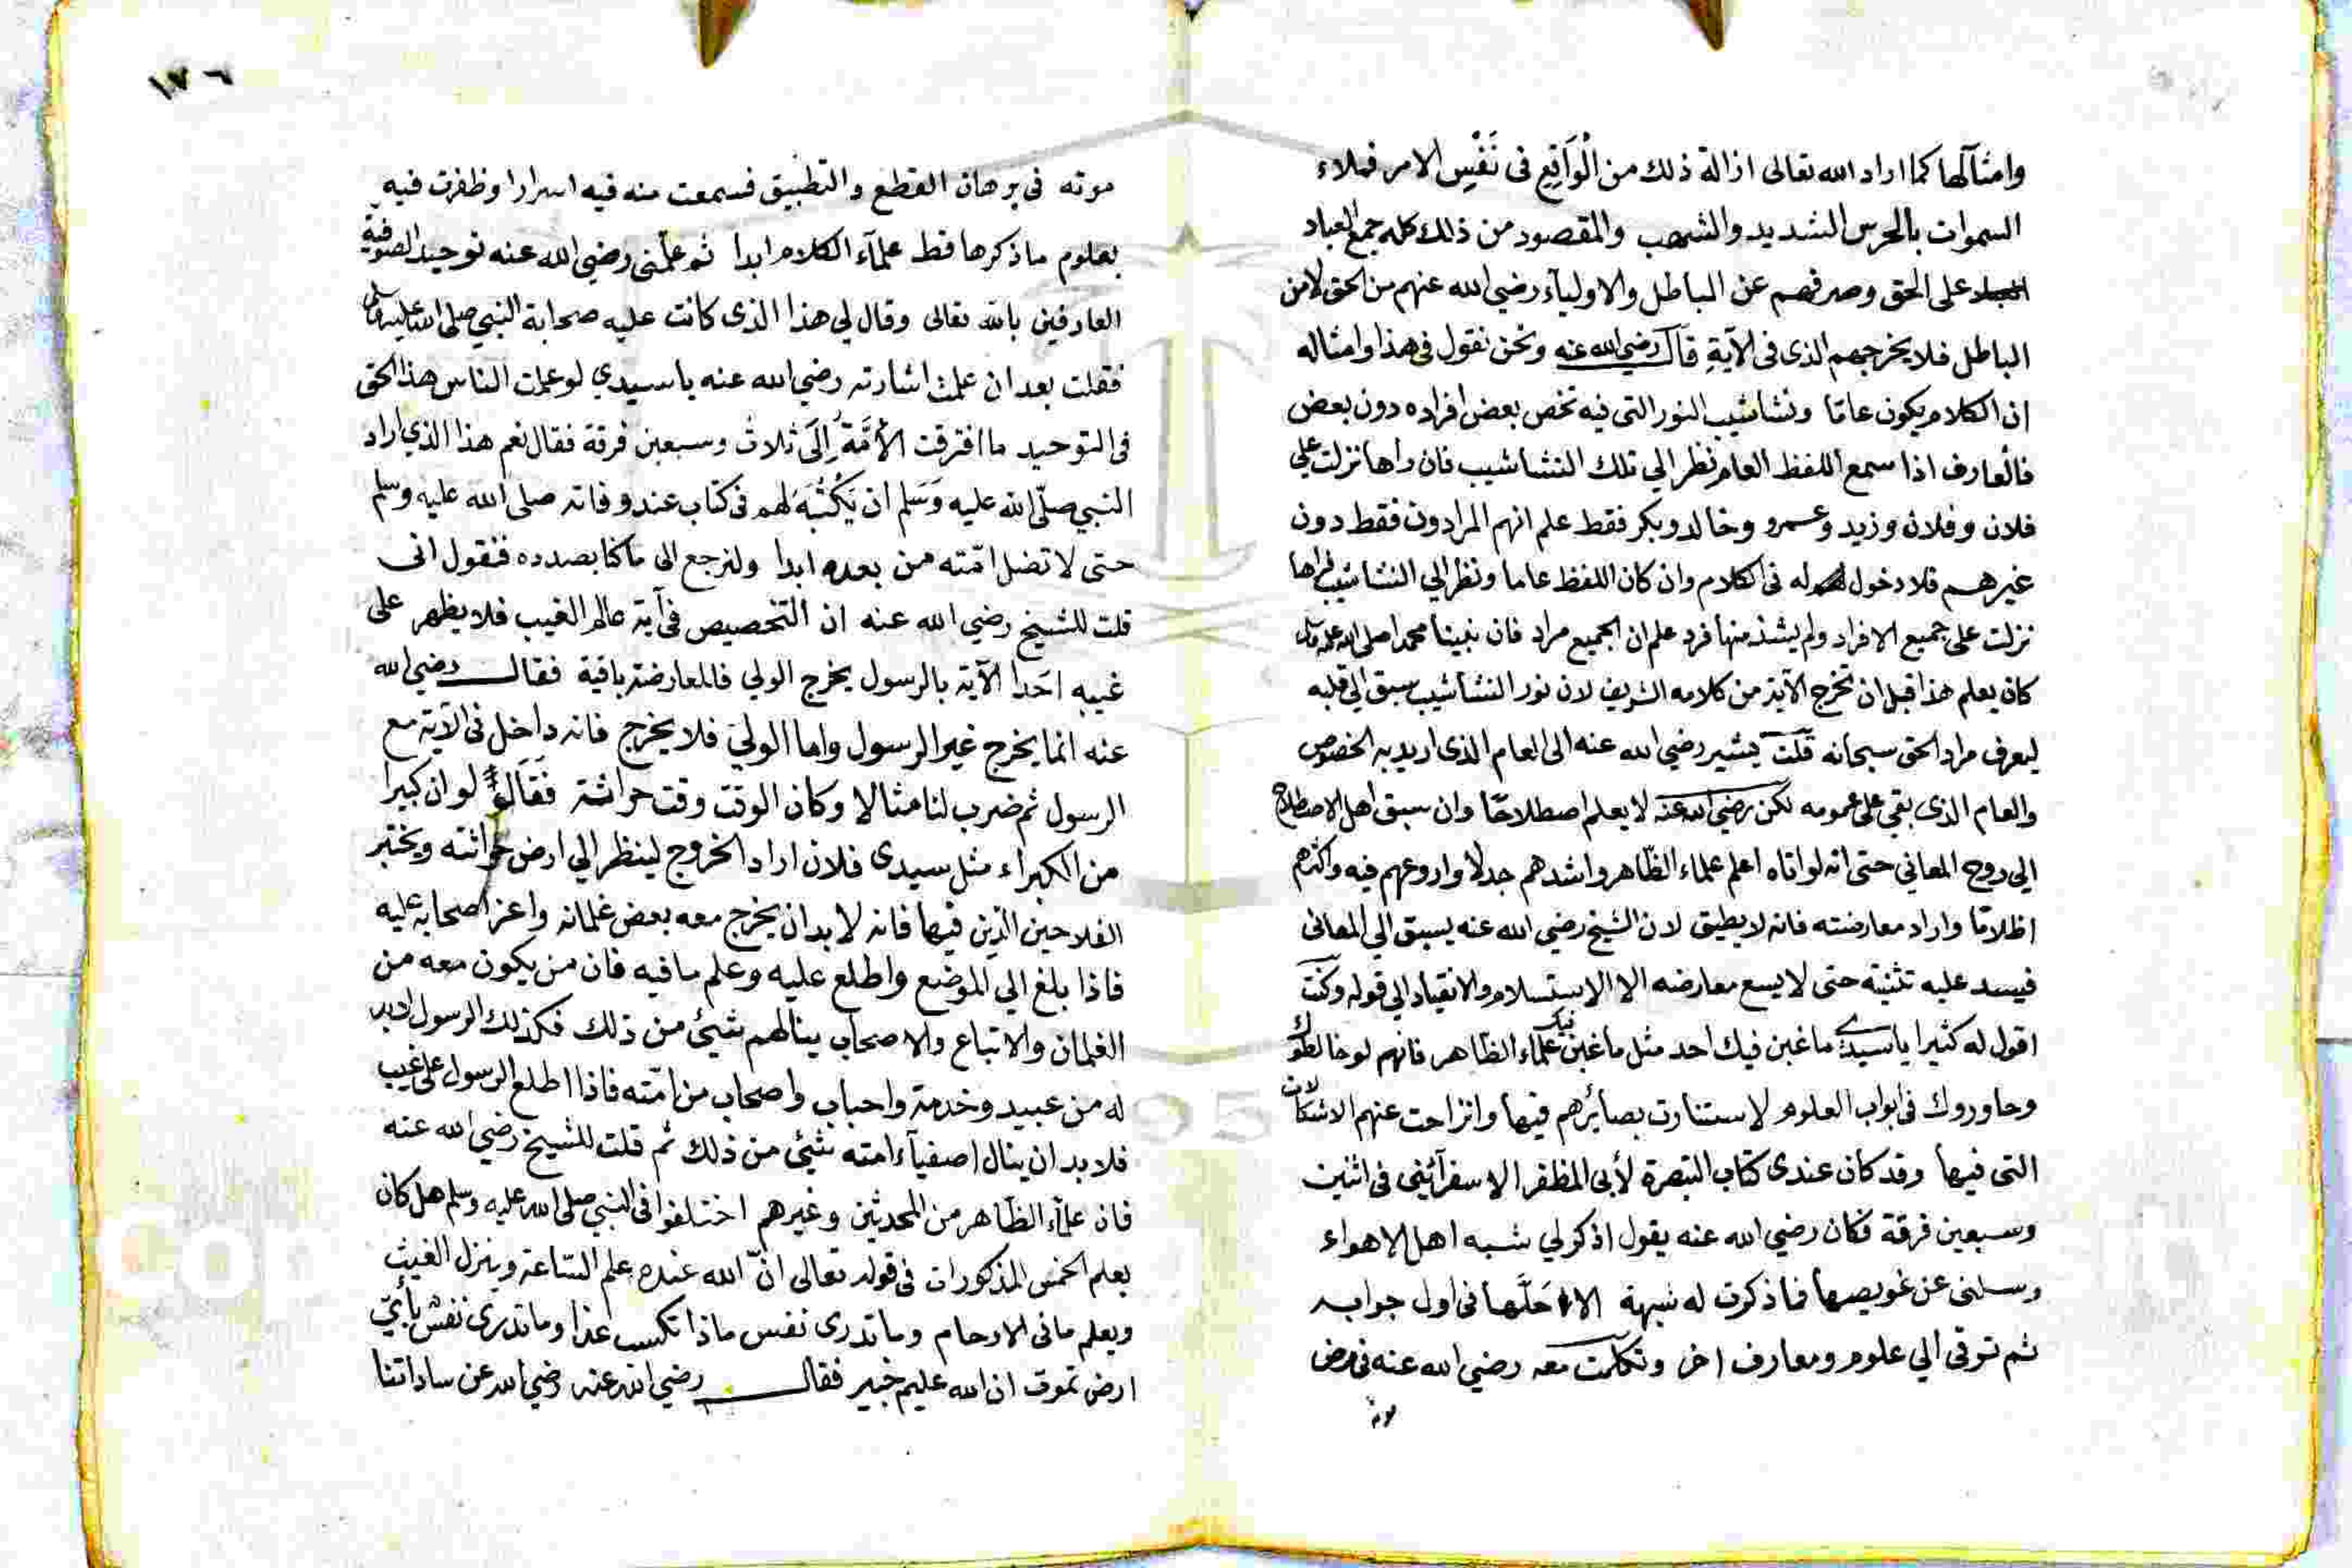 وامثالها كما اراد الله تعالى ازالة ذلك من الْوَاقِعِ فى نَفْسِ الامر فملاء
السموات بالحرس الشديد والشهب والمقصود من ذلك كله جمع العباد
على الحق وصرفهم عن الباطل والاولياء رضي الله عنهم من الحق لا من
الباطل فلا يخرجهم الذى فى الآيةِ قال رضي الله عنه ونحن نقول فى هذا وامثاله
ان الكلام يكون عامّا ونشاشيب النور التى فيه تخص بعض افراده دون بعض
فالعارف اذا سمع اللفظ العام نظر الي تلك النشاشيب فان راها نزلت على
فلان وفلان وزيد وعمرو وخالد وبكر فقط علم انهم المرادون فقط دون
غيرهم فلا دخول له فى الكلام وان كان اللفظ عاما ونظر الي النشاشيب فراها
نزلت على جميع الافراد ولم يشذ منها فرد علم ان الجميع مراد فان نبينا محمدا صلى الله عليه وسلم
كان يعلم هذا قبل ان تخرج الآية من كلامه الشريف لان نور النشاشيب سبق الي قلبه
ليعرف مراد الحق سبحانه قلت يشير رضي الله عنه الى العام الذى اريد به الخصوص
والعام الذى بقي على عمومه لكن رضي الله عنه لا يعلم اصطلاحًا وان سبق اهل الاصطلاح
الي روح المعاني حتى انه لو اتاه اعلم علماء الظاهر واشدهم جدلا واروعهم فيه واكثرهم
اظلامًا واراد معارضته فانه لا يطيق لان الشيخ رضي الله عنه يسبق الي المعانى
فيسد عليه تثنيته حتى لا يسع معارضه الا الاستسلام والانقياد الي قوله وكنت
اقول له كثيرا يا سيدي ما غبن فيك احد مثل ما غبن فيك علماء الظاهر فانهم لو خالطوك
وحاوروك فى ابواب العلوم لاستنارت بصائرهم فيها وانزاحت عنهم الاشكالات
التى فيها وقد كان عندى كتاب التبصرة لأبى المظفر الاسفرآئنى فى اثنين
وسبعين فرقة فكان رضي الله عنه يقول اذكر لي شبه اهل الاهواء
وسلنى عن عويصها فما ذكرت له شبهة الا حَلَّها فى اول جوابه
ثم ترقى الي علوم ومعارف اخر وتكلمت معه رضي الله عنه فى مرض
موته
١٧٦
موته فى برهان القطع والتطبيق فسمعت منه فيه اسرارا وظفرت فيه
بعلوم ما ذكرها قط علمآء الكلام ابدا ثم علّمنى رضي الله عنه توحيد الصوفية
العارفين بالله تعالى وقال لي هذا الذى كانت عليه صحابة النبي صلى الله عليه وسلم
فقلت بعد ان علمت اشارته رضي الله عنه يا سيدي لو علمت الناس هذا الحق
فى التوحيد ما افترقت الأمَّةُ إِلَى ثلاث وسبعين فرقة فقال نعم هذا الذي اراد
النبي صلّى الله عليه وَسَلم ان يَكْتُبَهُ لهم فى كتاب عند وفاته صلى الله عليه وسلم
حتى لا تضل امّته من بعده ابدا ولنرجع الى ما كنا بصدده فنقول انى
قلت للشيخ رضي الله عنه ان التخصيص فى آية عالم الغيب فلا يظهر على
غيبه احَدا الآية بالرسول يخرج الولي فالمعارضة باقية فقال رضي الله
عنه انما يخرج غير الرسول واما الولي فلا يخرج فانه داخل فى الآية مع
الرسول ثم ضرب لنا مثالا وكان الوقت وقت حراثة فَقَالَ لو ان كبيرا
من الكبراء مثل سيدى فلان اراد الخروج لينظر الي ارض حراثته ويختبر
الفلاحين الذين فيها فانه لا بد ان يخرج معه بعض غلمانه واعز اصحابه عليه
فاذا بلغ الي الموضع واطلع عليه وعلم ما فيه فان من يكون معه من
الغلمان والاتباع والاصحاب ينالهم شيئ من ذلك فكذلك الرسول لابد
له من عبيد وخدمة واحباب واصحاب من امّته فاذا اطلع الرسول على غيب
فلا بد ان ينال اصفيآء امته شيئ من ذلك ثم قلت للشيخ رضي الله عنه
فان علمآء الظاهر من المحدثين وغيرهم اختلفوا فى النبي صلى الله عليه وسلم هل كان
يعلم الخمس المذكورات فى قوله تعالى انّ الله عنده علم السّاعة وينزل الغيث
ويعلم مافى الارحام وما تدرى نفس ماذا تكسب غدا وما تدرى نفسٌ بِأَيّ
ارض تموت ان الله عليم خبير فقال رضي الله عنه رضي الله عن ساداتنا